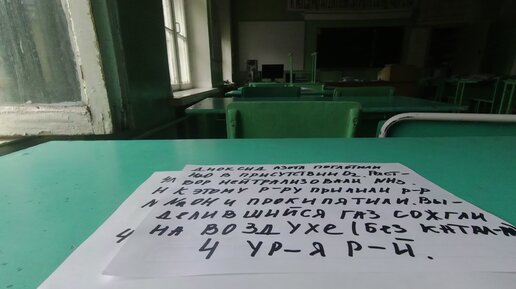 ДИОКСИД АЗОТА ПОГЛОТИЛИ
H₂O В ПРИСУТСТВИИ O₂. РАСТ-
ВОР НЕЙТРАЛИЗОВАЛИ NH₃
К ЭТОМУ Р-РУ ПРИЛИЛИ Р-Р
NaOH И ПРОКИПЯТИЛИ. ВЫ-
ДЕЛИВШИЙСЯ ГАЗ СОЖГЛИ
НА ВОЗДУХЕ (БЕЗ КАТАЛ-
4 УР-Я Р-Й.